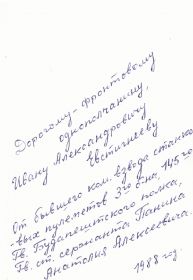 Дорогому - фронтовому
однополчанину,
Ивану Александровичу
Евстигнееву
От бывшего ком. взвода станко-
вых пулеметов 3го б-на, 145го
Гв. Будапештского полка,
Гв. ст. сержанта Панина
Анатолия Алексеевича.
1988 год.